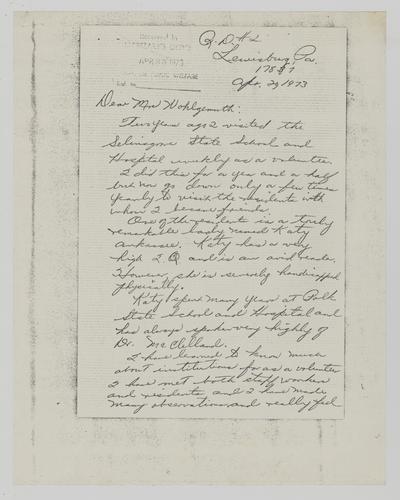 R.D.#2
Lewisburg, Pa.
17837
Apr. 29 1973
Dear Mrs Wohlgemuth:
Two years ago I visited the
Selinsgrove State School and
Hospital weekly as a volunteer.
I did this for a year and a half
but now go down only a few times
yearly to visit the residents with
whom I became friends.
One of the residents is a truly
remarkable lady named Katy
Katy has a very
high I Q and is an avid reader.
However, she is severely handicapped
physically.
Katy spent many years at Polk
State School and Hospital and
has always spoken very highly of
Dr. McClelland.
I have learned to know much
about institutions for as a volunteer
I have met both staff workers
and residents and I have made
many observations and really feel